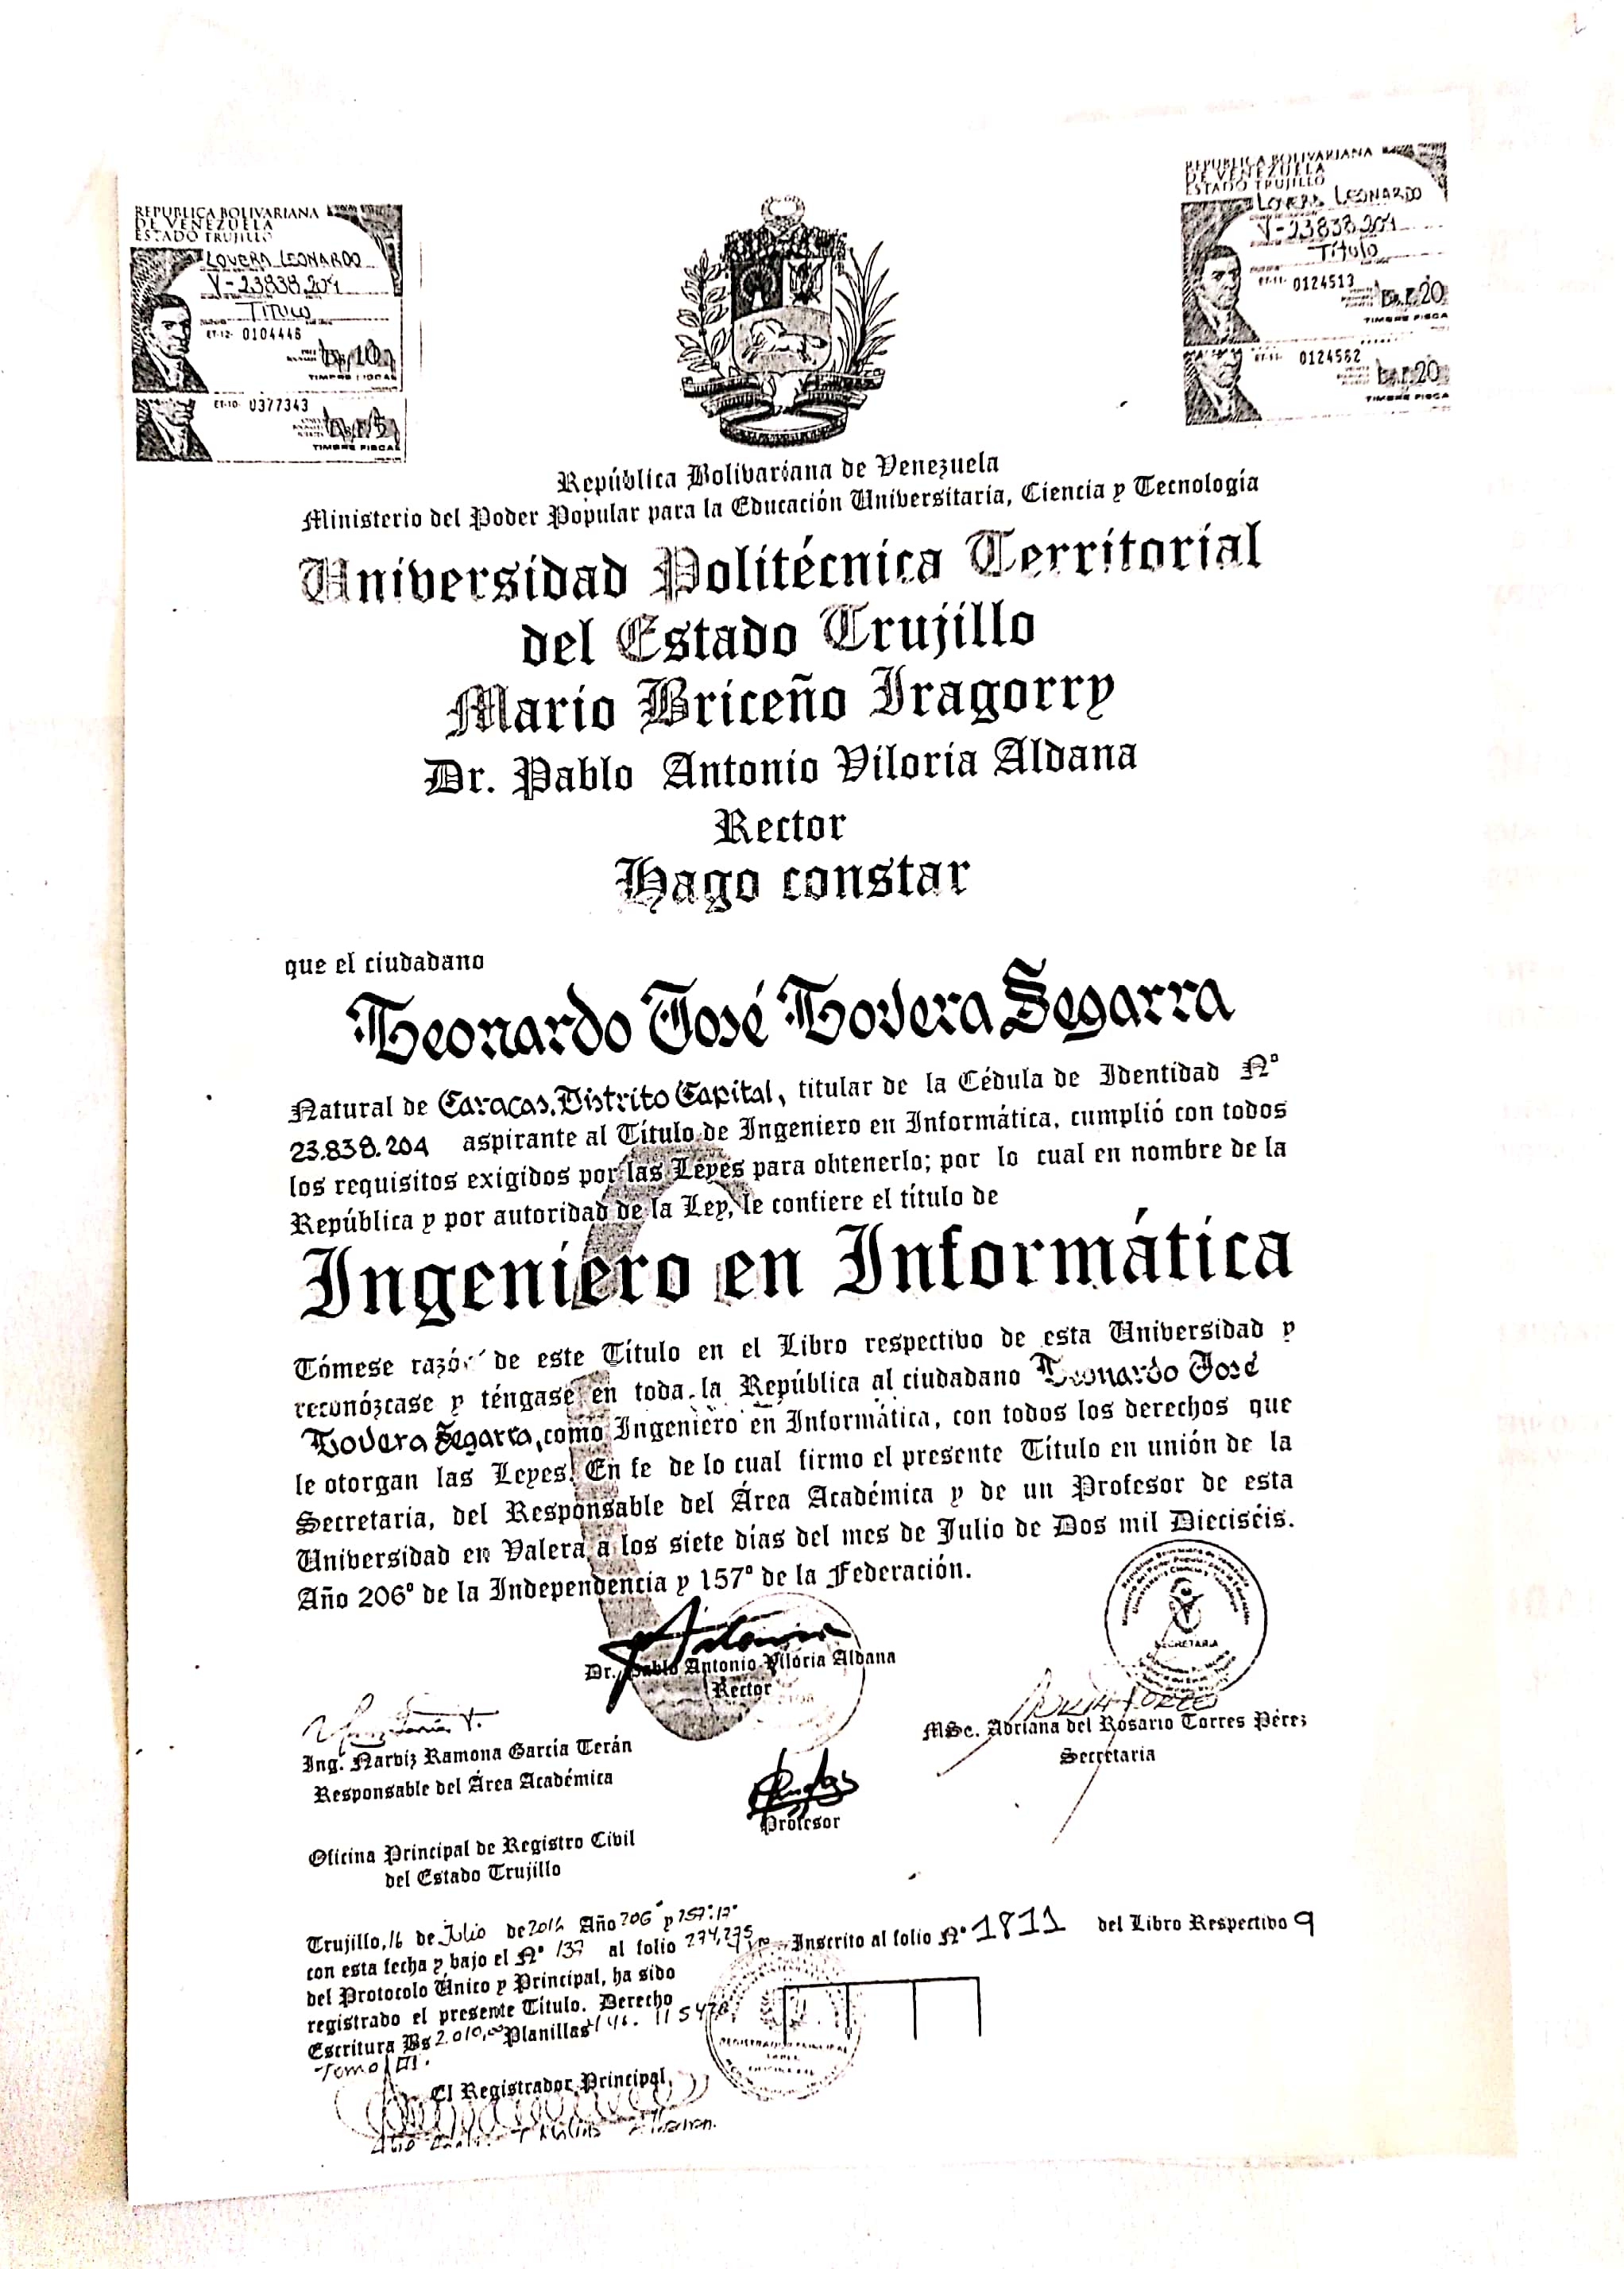 REPUBLICA BOLIVARIANA
DE VENEZUELA
ESTADO TRUJILLO
LOVERA LEONARDO
V-23838.204
TITULO
ET-12- 0104446
Bs. 10
TIMBRE FISCAL
ET-10- 0377343
TIMBRE FISCAL
REPUBLICA BOLIVARIANA
DE VENEZUELA
ESTADO TRUJILLO
LOVERA LEONARDO
V-23838.204
Título
ET-11- 0124513
Bs.F. 20
TIMBRE FISCA
ET-11- 0124562
Bs.F. 20
TIMBRE FISCA
República Bolivariana de Venezuela
Ministerio del Poder Popular para la Educación Universitaria, Ciencia y Tecnología
Universidad Politécnica Territorial
del Estado Trujillo
Mario Briceño Iragorry
Dr. Pablo Antonio Viloria Aldana
Rector
Hago constar
que el ciudadano
Leonardo José Lovera Segarra
Natural de Caracas, Distrito Capital, titular de la Cédula de Identidad Nº
23.838.204 aspirante al Título de Ingeniero en Informática, cumplió con todos
los requisitos exigidos por las Leyes para obtenerlo; por lo cual en nombre de la
República y por autoridad de la Ley, le confiere el título de
Ingeniero en Informática
Tómese razón de este Título en el Libro respectivo de esta Universidad y
reconózcase y téngase en toda la República al ciudadano Leonardo José
Lovera Segarra, como Ingeniero en Informática, con todos los derechos que
le otorgan las Leyes. En fe de lo cual firmo el presente Título en unión de la
Secretaria, del Responsable del Área Académica y de un Profesor de esta
Universidad en Valera a los siete días del mes de Julio de Dos mil Dieciséis.
Año 206º de la Independencia y 157º de la Federación.
Dr. Pablo Antonio Viloria Aldana
Rector
SECRETARIA
Ing. Narviz Ramona García Terán
Responsable del Área Académica
MSc. Adriana del Rosario Torres Pérez
Secretaria
Profesor
Oficina Principal de Registro Civil
del Estado Trujillo
Trujillo, 16 de Julio de 2016 Año 206º y 157º.
con esta fecha y bajo el Nº 137 al folio 274,275
del Protocolo Único y Principal, ha sido
registrado el presente Título. Derecho
Escritura Bs 2.010,00 Planillas
Tomo III.
El Registrador Principal,
Inscrito al folio Nº 1811 del Libro Respectivo 9